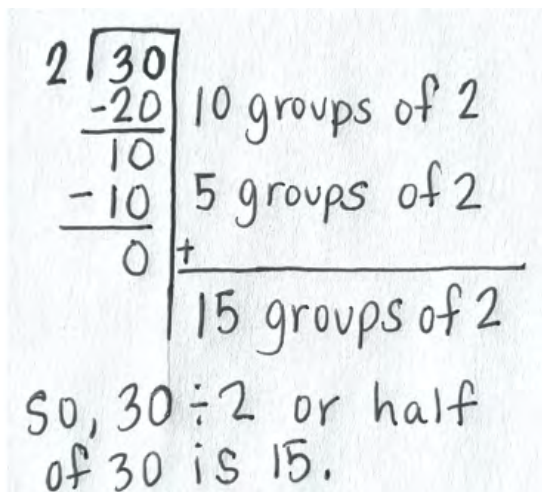 2 30
-20 10 groups of 2
10
-10 5 groups of 2
0 +
15 groups of 2
So, 30 ÷ 2 or half
of 30 is 15.